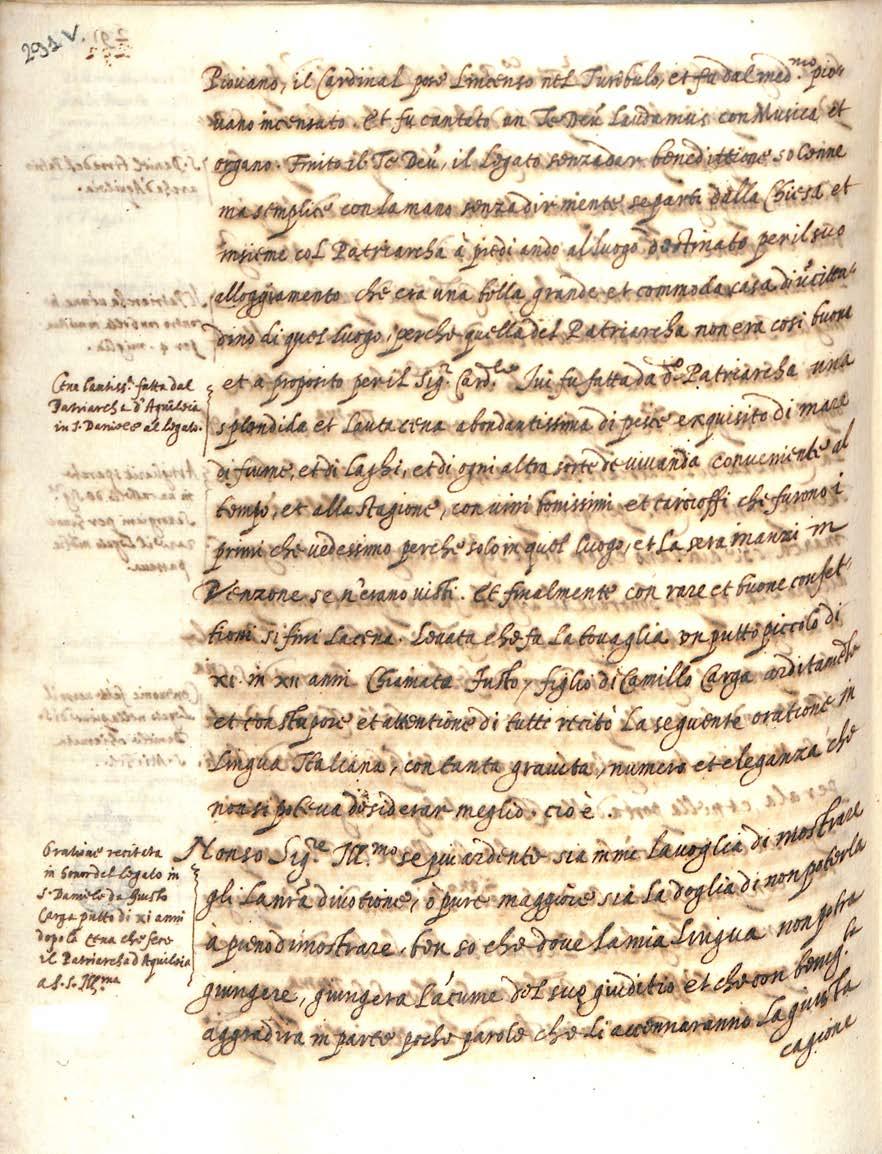 291 V.
Piovano, il Cardinal pose l'incenso nel Turibulo, et fu dal med.mo pio-
vano incensato. Et fu cantato un Te Deũ Laudamus con Musica et
organo. Finito il Te Deũ, il Legato senza dar benedittione solenne
ma semplice con la mano senza dir niente se parti dalla Chiesa et
insieme col Patriarcha à piedi andò al luogo destinato per il suo
alloggiamento che era una bella grande et commoda casa di ũ citta-
dino di quel luogo, perche quella del Patriarcha non era cosi buona
et a proposito per il Sig.r Card.le Ivi fu fatta da d.o Patriarcha una
splendida et lauta cena abondantissima di pesce exquisito di mare
di fiume, et di Laghi, et di ogni altra sorte de vivanda conveniente al
tempo, et alla stagione, con vini bonissimi et carcioffi che furono i
primi che vedessimo perche solo in quel luogo, et la sera inanzi in
Venzone se n'erano visti. Et finalmente con rare et buone confet-
tioni si finì la cena. Levata che fu la tovaglia un putto piccolo di
xi. in xii anni Chiamato Iusto, figlio di Camillo Carga arditamẽte
et con stupore et attentione di tutti recitò la seguente oratione in
Lingua Italiana, con tanta gravita, numero et eleganza che
non si poteva desiderar meglio. cio è.
Cena lautiss.a fatta dal
Patriarcha d'Aquileia
in S. Daniele al Legato.
Non so Sig.re Ill.mo se piu ardente sia in me la voglia di mostrare
gli la nrã divotione, ò pure maggiore sia la doglia di non poterla
à pieno dimostrare. ben so che dove la mia Lingua non potra
giungere, giungerà l'acume del suo giuditio et che con benig.tà
aggradira in parte poche parole che li accennaranno la giusta
cagione
Oratione recitata
in honor del Legato in
S. Daniele da Giusto
Carga putto di xi anni
dopo la cena che fece
il Patriarcha d'Aquileia
a S. S. Ill.ma